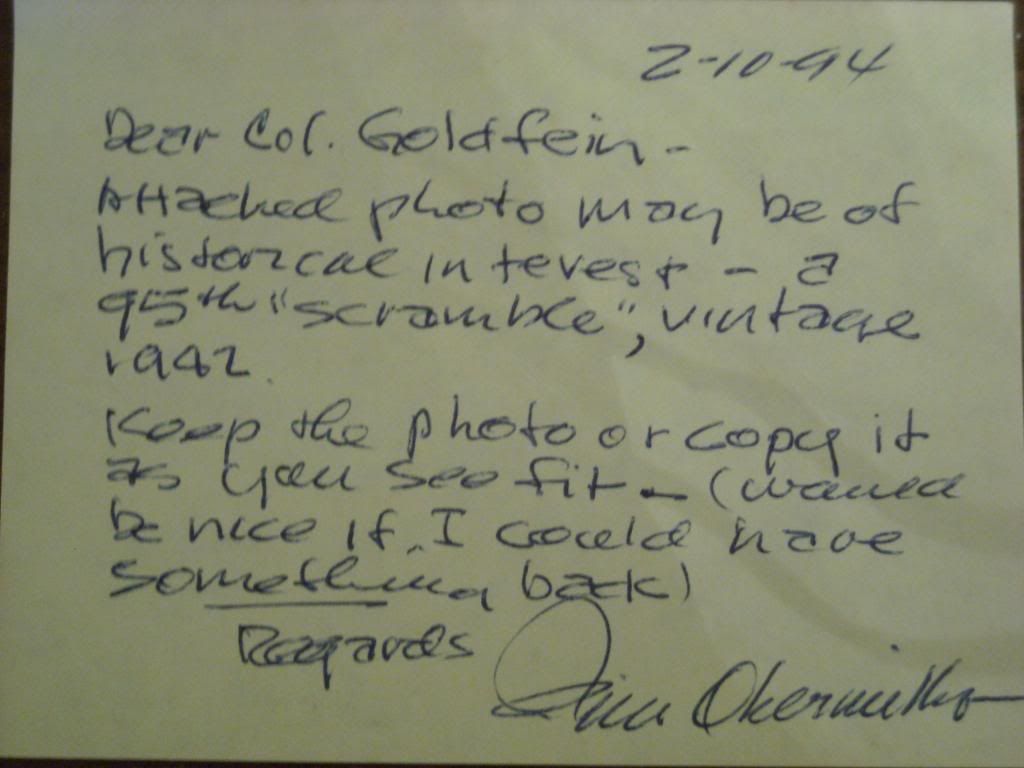 2-10-94
Dear Col. Goldfein -
Attached photo may be of
historical interest - a
95th "scramble", vintage
1942.
Keep the photo or copy it
as you see fit - (would
be nice if I could have
something back)
Regards
Jim